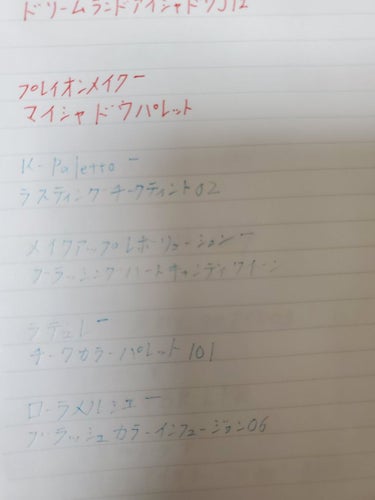 ドリームランドアイシャドウJ12
プレイオンメイクー
マイシャドウパレット
K-Palettoー
ラスティングチークティント02
メイクアップレボリューションー
ブラッシングハートキャンディクイーン
ラデュレー
チークカラーパレット101
ローラメルシエー
ブラッシュカラーインフュージョン06